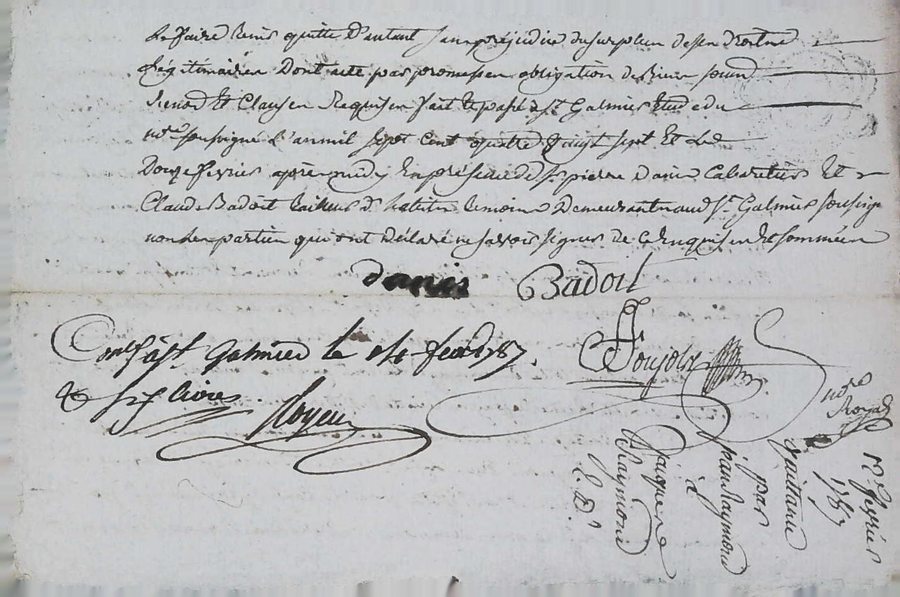 Le faire tenir quitte d'autant sans préjudice du surplus de ses droits
légitimaires Dont acte par promesse obligation de biens soumis
Renonc et Clauses Requises fait et passé à St Galmier Etude du
nore soussigné L'an mil sept cent quatre vingt sept Et Le
Douze fevrier après midy En presence de Sr pierre danis Cabaretier Et
Claude Badoit tailleur d'habits temoins Demeurants aud St Galmier soussignés
non les parties qui ont déclaré ne savoir signer de ce Enquises Et sommées
danis Badoit
Conlé à St Galmier le 14 fevr 1787.
six livres.
Royer
nore
Royal
12e fevrier
1787
quittance
par
jean Raymond
à
jacques
Raymond